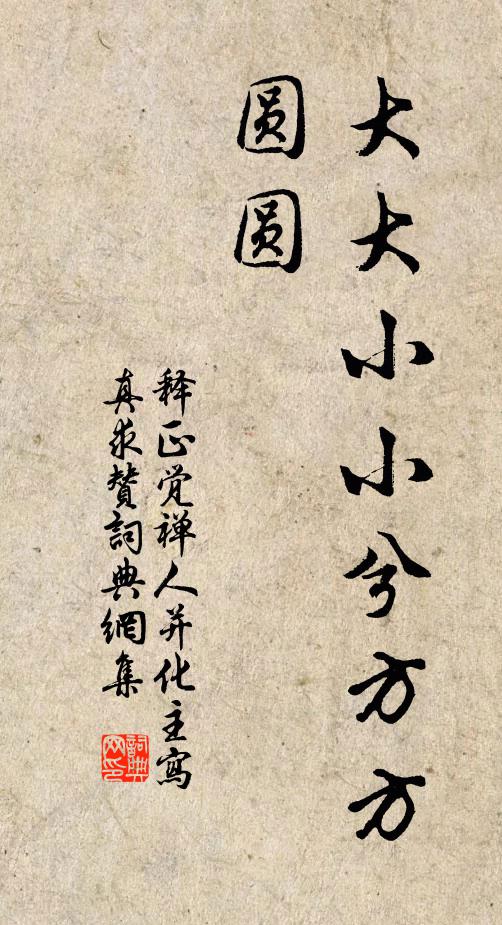 大大小小兮方方
圆圆
释正觉禅人并化主寫
真求贊詞典網集
詞典
网印